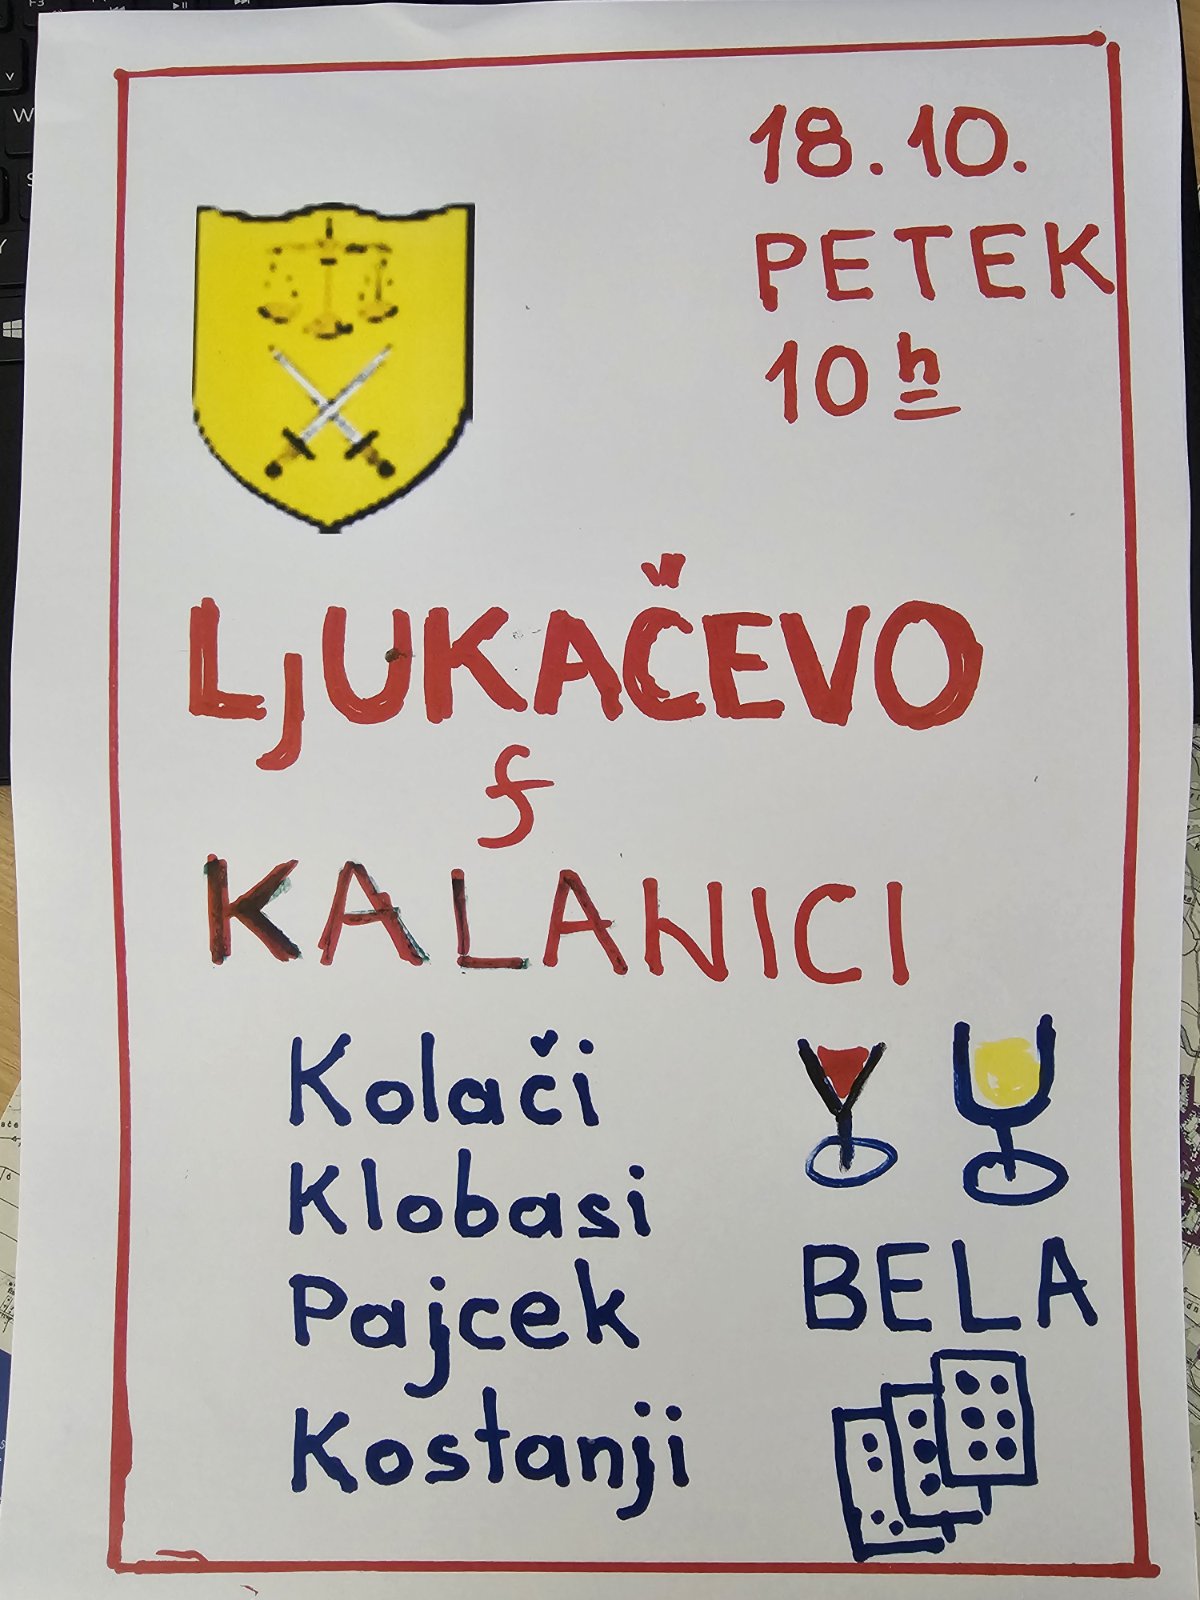 18.10.
PETEK
10h
LjUKAČEVO
f
KALANICI
Kolači
Klobasi
Pajcek
Kostanji
BELA